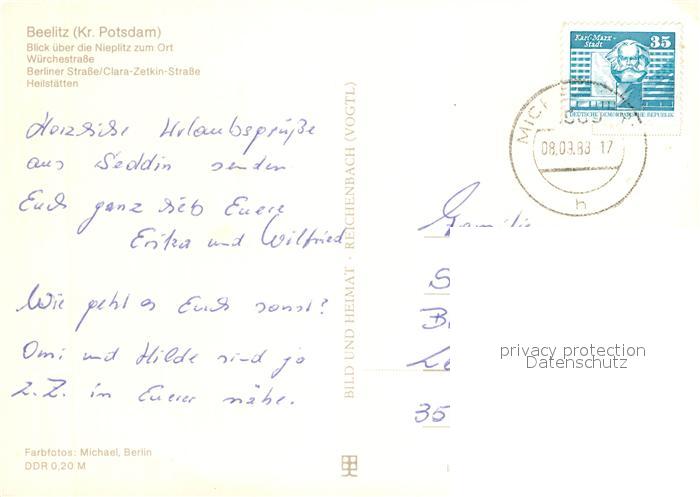 Beelitz (Kr. Potsdam)
Blick über die Nieplitz zum Ort
Würchestraße
Berliner Straße/Clara-Zetkin-Straße
Heilstätten
Herzliche Urlaubsgrüße
aus Seddin senden
Euch ganz lieb Euere
Erika und Wilfried
Wie geht es Euch sonst?
Omi und Hilde sind ja
z.Z. in Euerer nähe.
Farbfotos: Michael, Berlin
DDR 0,20 M
BILD UND HEIMAT · REICHENBACH (VOGTL)
Karl-Marx-
Stadt
35
DEUTSCHE DEMOKRATISCHE REPUBLIK
08.09.88 17
h
Familie
S
B
35
privacy protection
Datenschutz